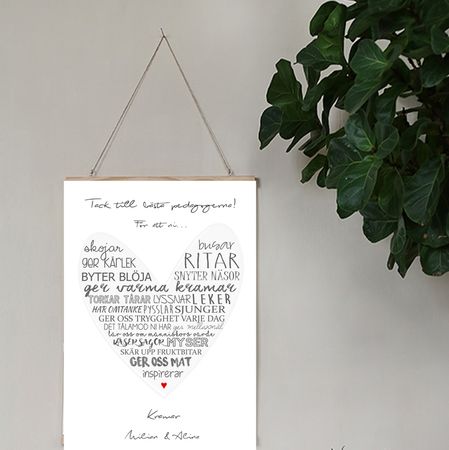 Tack till bästa pedagogerna!
För att ni...
skojar busar
GER KÄRLEK RITAR
BYTER BLÖJA SNYTER NÄSOR
ger varma kramar
TORKAR TÅRAR LYSSNAR LEKER
HAR OMTANKE PYSSLAR SJUNGER
GER OSS TRYGGHET VARJE DAG
DET TÅLAMOD NI HAR ger mellanmål
lär oss om människors värde
LÄSER SAGOR MYSER
SKÄR UPP FRUKTBITAR
GER OSS MAT
inspirerar
Kramar
&